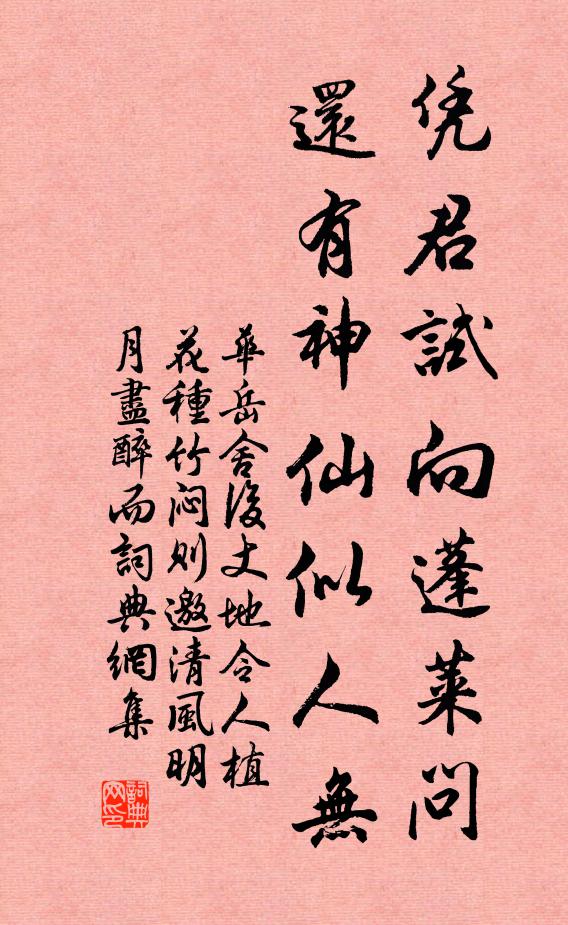 凭君試向蓬萊問
還有神仙似人無
華岳舍後丈地令人植
花種竹闷則邀清風明
月盡醉而詞典網集
詞典
网印